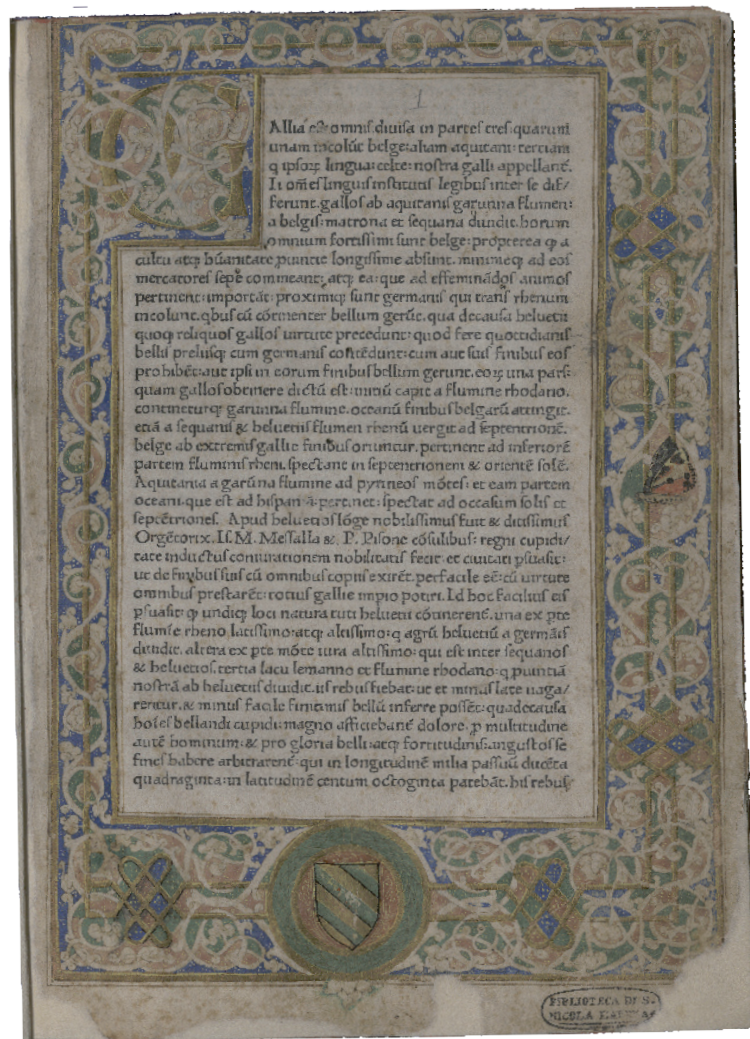 1
GAllia est omnis diuisa in partes tres. quarum
unam incolūt belge: aliam aquitani: tertiam
q ipsoꝝ lingua: celte: nostra galli appellanť.
Ii om̄es linguis institutis legibus inter se dif/
ferunt. gallos ab aquitanis garunna flumen:
a belgis: matrona et sequana diuidit. horum
omnium fortissimi sunt belge: propterea ꝙ a
cultu atqꝫ hūanitate ꝓuintie longissime absunt. minimeqꝫ ad eos
mercatores sepe commeant: atqꝫ ea: que ad effeminādos animos
pertinent: importāt: proximiqꝫ sunt germanis qui trans rhenum
incolunt. qbus cū cōntenter bellum gerūt. qua de causa heluetii
quoqꝫ reliquos gallos uirtute precedunt: quod fere quottidianis
bellis preliisqꝫ cum germanis contēdunt: cum aut suis finibus eos
prohibēt: aut ipsi in eorum finibus bellum gerunt. eoꝝ una pars:
quam gallos obtinere dictū est: initiū capit a flumine rhodano.
continetur garunna flumine. oceanū finibus belgarū attingit.
etiā a sequanis & heluetiis flumen rhenū uergit ad septentrionē.
belge ab extremis gallie finibus oriuntur. pertinent ad inferiorē
partem fluminis rheni. spectant in septentrionem & orientē solē.
Aquitania a garūna flumine ad pyrineos mōtes: et eam partem
oceani. que est ad hispaniā pertinet: spectat ad occasum solis et
septētriones. Apud heluetios lōge nobilissimus fuit & ditissimus
Orgētorix. Is. M. Messalla &. P. Pisone cōsulibus: regni cupidi/
tate inductus coniurationem nobilitatis fecit. et ciuitati ꝑsuasit:
ut de finibus suis cū omnibus copiis exirēt. perfacile eē: cū uirtute
omnibus prestarēt: totius gallie impio potiri. Id hoc facilius eis
ꝑsuasit: ꝙ undiqꝫ loci natura tuti heluetii cōtinerenť. una ex ꝑte
flumīe rheno latissimo: atqꝫ altissimo: q agrū heluetiū a germāis
diuidit. altera ex ꝑte mōte iura altissimo: qui est inter sequanos
& heluetios. tertia lacu lemanno et flumine rhodano: q ꝓuintiā
nostrā ab heluetiis diuidit. iis rebus fiebat: ut et minus late uaga/
rentur. & minus facile finitimis bellū inferre possēt: qua de causa
hoīes bellandi cupidi: magno afficiebanť dolore. ꝓ multitudine
autē hominum: & pro gloria belli: atqꝫ fortitudinis: angustos se
fines habere arbitrarenť: qui in longitudinē milia passuū ducēta
quadraginta: in latitudinē centum octoginta patebāt. his rebus
BIBLIOTECA DI S.